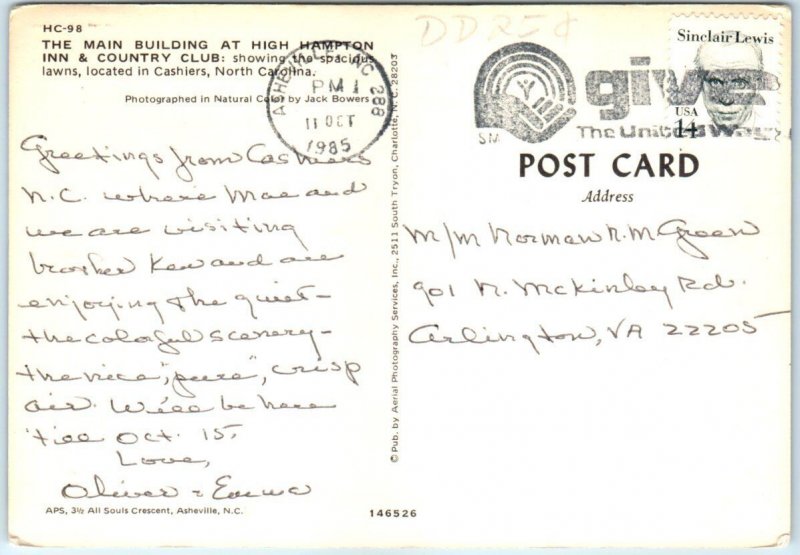 HC-98
THE MAIN BUILDING AT HIGH HAMPTON
INN & COUNTRY CLUB: showing the spacious
lawns, located in Cashiers, North Carolina.
Photographed in Natural Color by Jack Bowers
ASHEVILLE, NC 288
PM 1
11 OCT
1985
Greetings from Cashiers
N.C. where Mae and
we are visiting
brother Ken and are
enjoying the quiet -
the colorful scenery -
the nice, "pure", crisp
air. We'll be here
'till Oct. 15.
Love,
Oliver & Emma
APS, 3½ All Souls Crescent, Asheville, N.C.
© Pub. by Aerial Photography Services, Inc., 2511 South Tryon, Charlotte, N. C. 28203
146526
SM
give
The United Way
Sinclair Lewis
USA
14
POST CARD
Address
M/M Norman R. M. Green
901 N. McKinley Rd.
Arlington, VA 22205